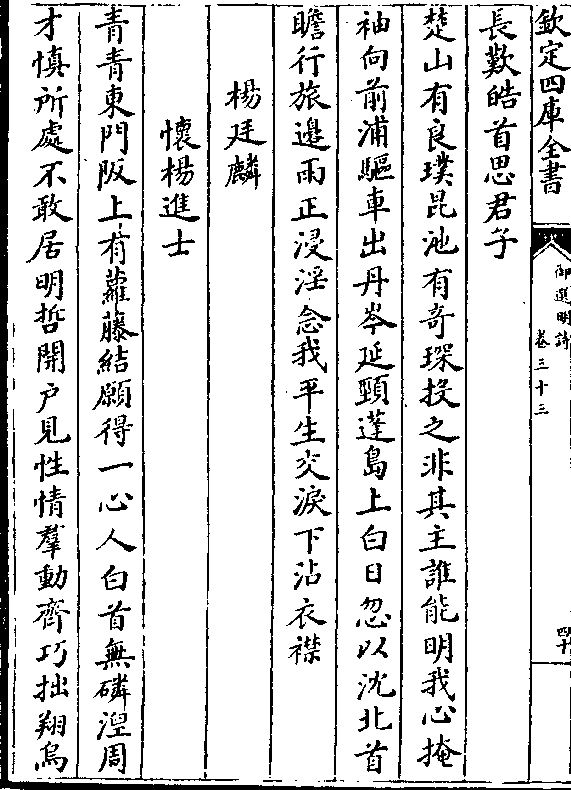 欽定四庫全書
御選明詩
卷三十三
四十
長歎皓首思君子
楚山有良璞昆池有奇琛投之非其主誰能明我心掩
袖向前浦驅車出丹岑延頸蓬島上白日忽以沈北首
瞻行旅邊雨正浸淫念我平生交淚下沾衣襟
楊廷麟
懷楊進士
青青東門阪上有蘿藤結願得一心人白首無磷涅周
才慎所處不敢居明哲開戶見性情羣動齊巧拙翔烏